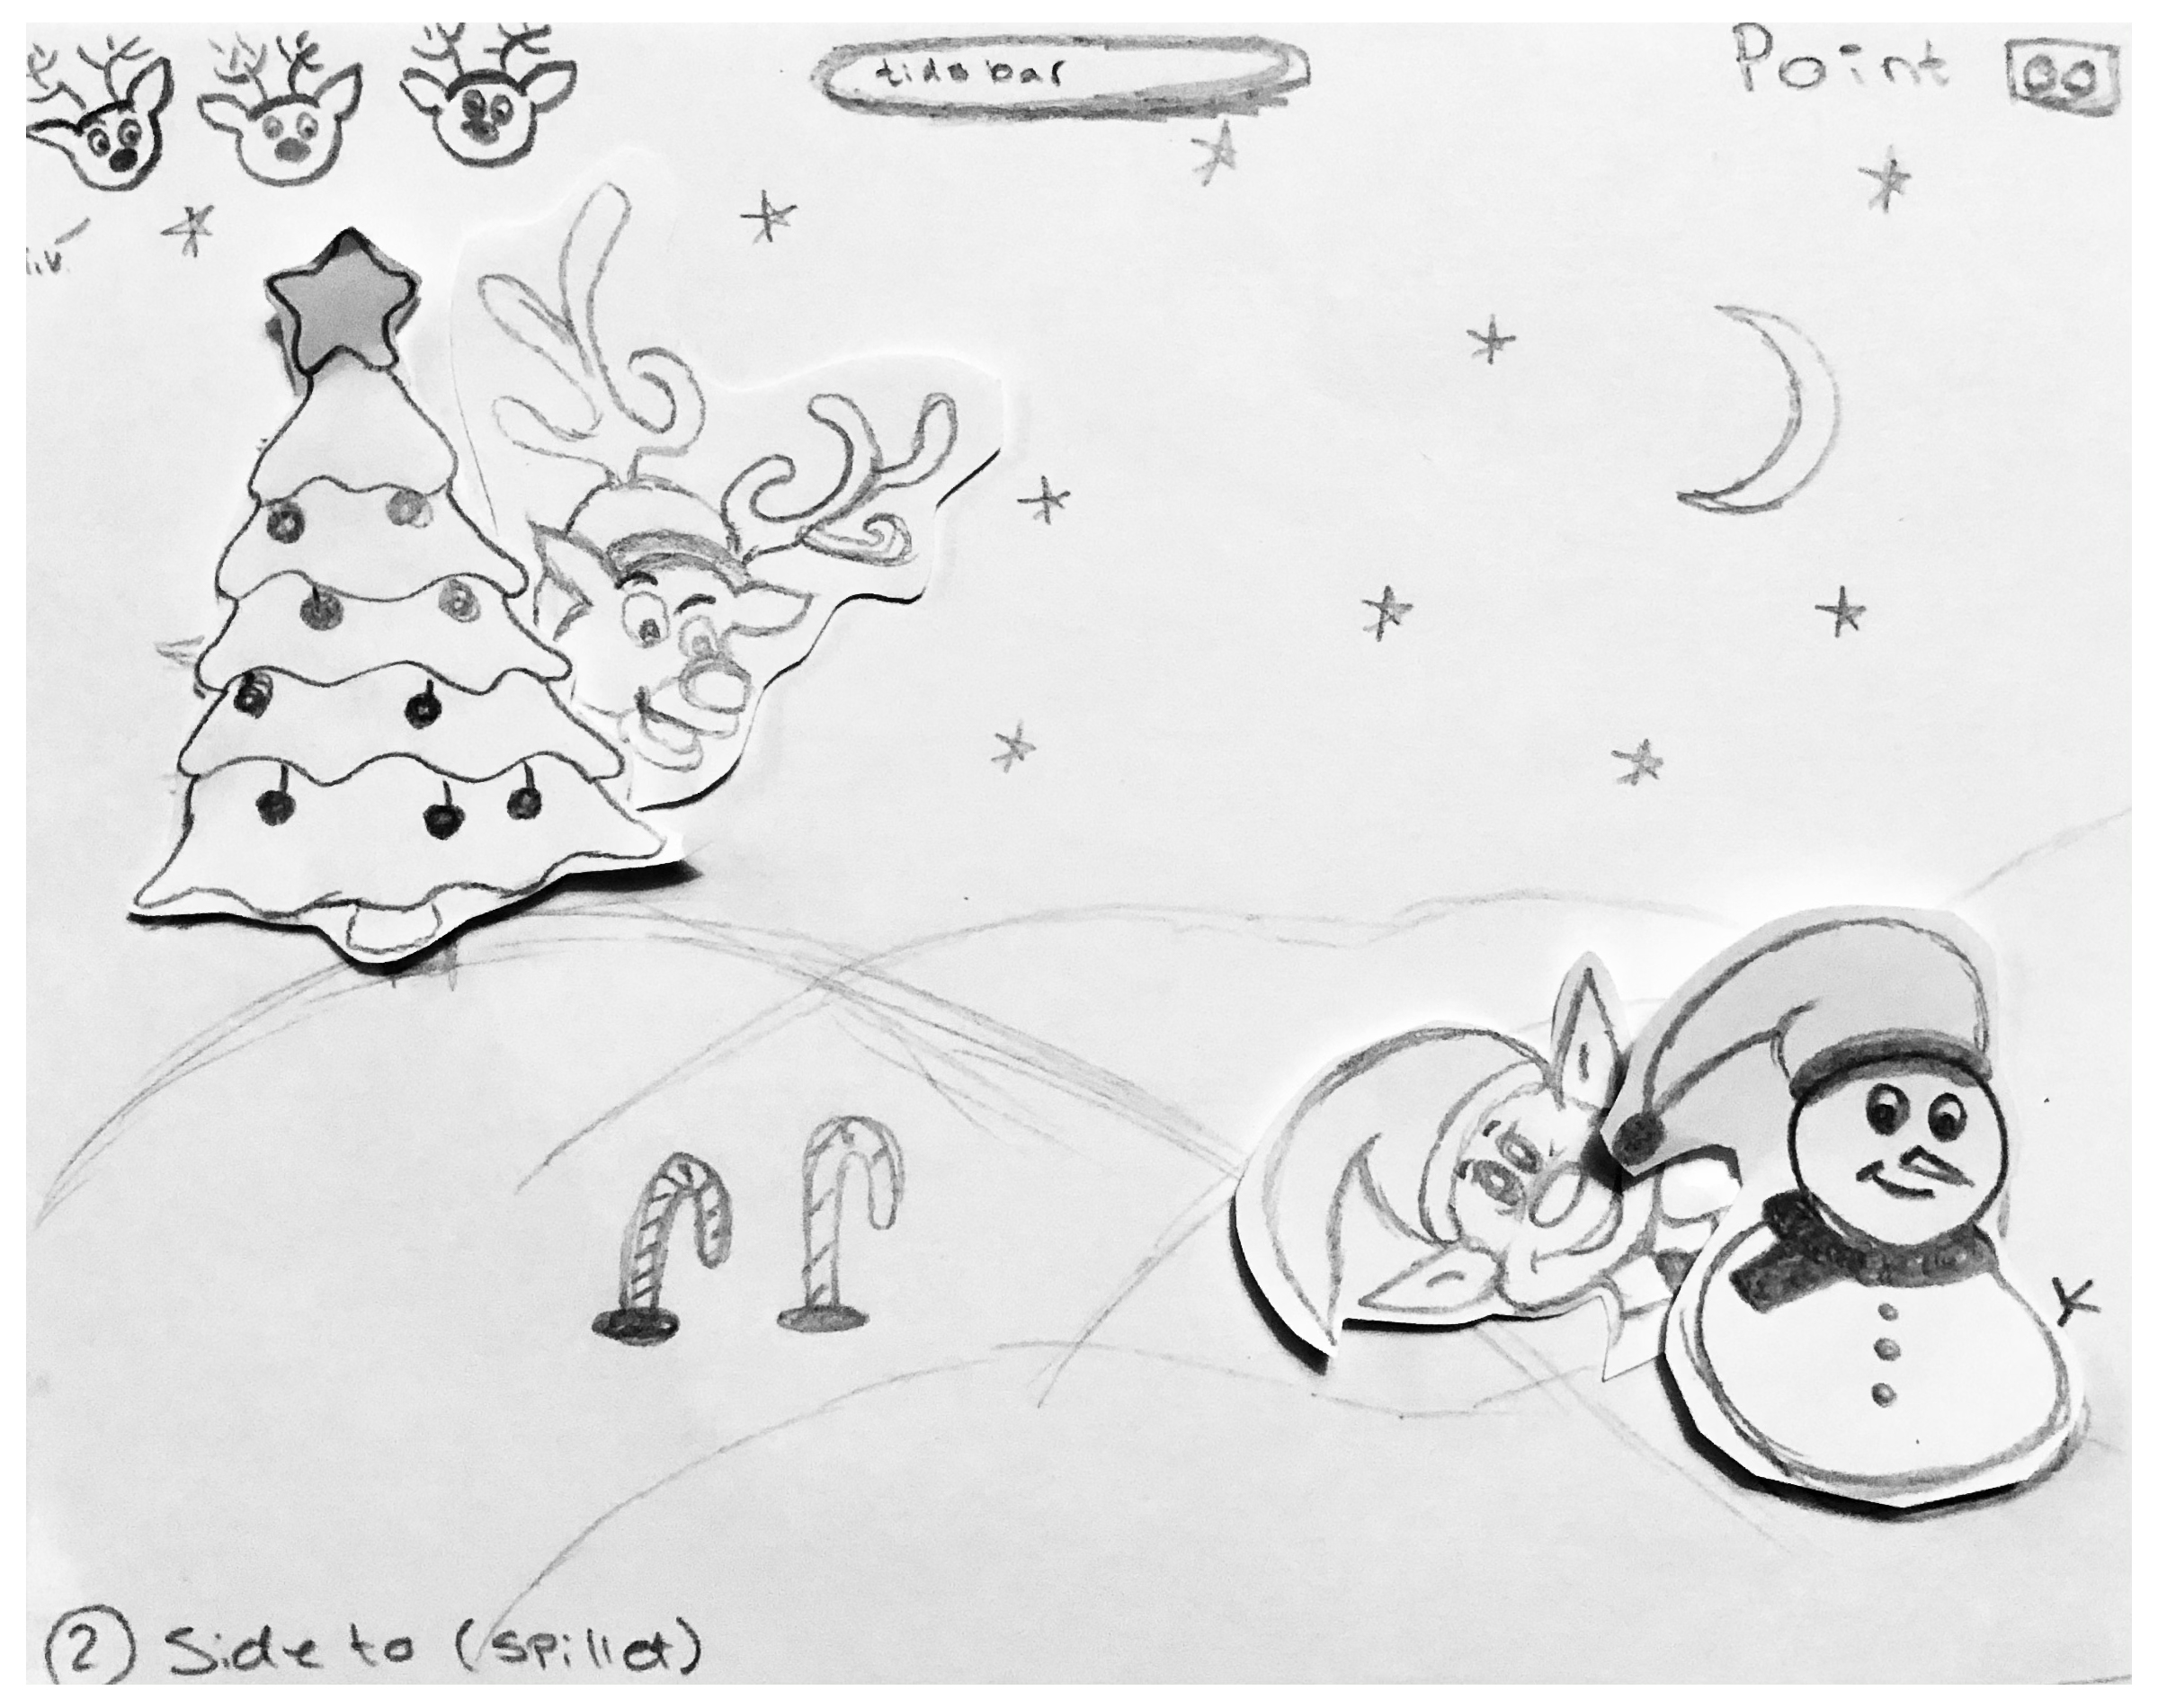 tidsbar
Point 00
liv.
2 Side to (spillet)